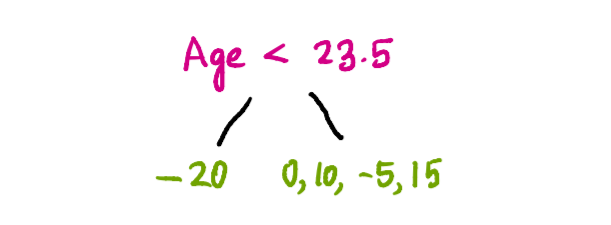 Age < 23.5
-20 0, 10, -5, 15